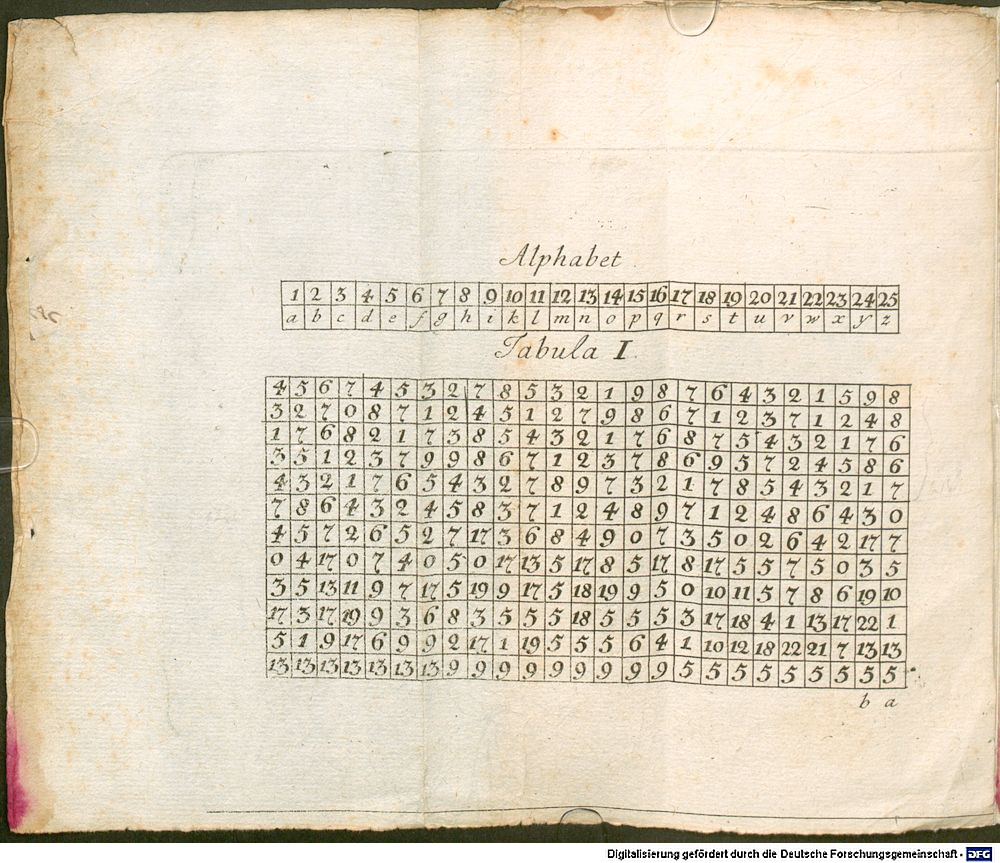 Alphabet
1 2 3 4 5 6 7 8 9 10 11 12 13 14 15 16 17 18 19 20 21 22 23 24 25
a b c d e f g h i k l m n o p q r s t u v w x y z
Tabula I.
4 5 6 7 4 5 3 2 7 8 5 3 2 1 9 8 7 6 4 3 2 1 5 9 8
3 2 7 0 8 7 1 2 4 5 1 2 7 9 8 6 7 1 2 3 7 1 2 4 8
1 7 6 8 2 1 7 3 8 5 4 3 2 1 7 6 8 7 5 4 3 2 1 7 6
3 5 1 2 3 7 9 9 8 6 7 1 2 3 7 8 6 9 5 7 2 4 5 8 6
4 3 2 1 7 6 5 4 3 2 7 8 9 7 3 2 1 7 8 5 4 3 2 1 7
7 8 6 4 3 2 4 5 8 3 7 1 2 4 8 9 7 1 2 4 8 6 4 3 0
4 5 7 2 6 5 2 7 17 3 6 8 4 9 0 7 3 5 0 2 6 4 2 17 7
0 4 17 0 7 4 0 5 0 17 13 5 17 8 5 17 8 17 5 5 7 5 0 3 5
3 5 13 11 9 7 17 5 19 9 17 5 18 19 9 5 0 10 11 5 7 8 6 19 10
17 3 17 19 9 3 6 8 3 5 5 5 18 5 5 5 3 17 18 4 1 13 17 22 1
5 1 9 17 6 9 9 2 17 1 19 5 5 5 6 4 1 10 12 18 22 21 7 13 13
13 13 13 13 13 13 13 9 9 9 9 9 9 9 9 9 5 5 5 5 5 5 5 5 5
b a
Digitalisierung gefördert durch die Deutsche Forschungsgemeinschaft - DFG